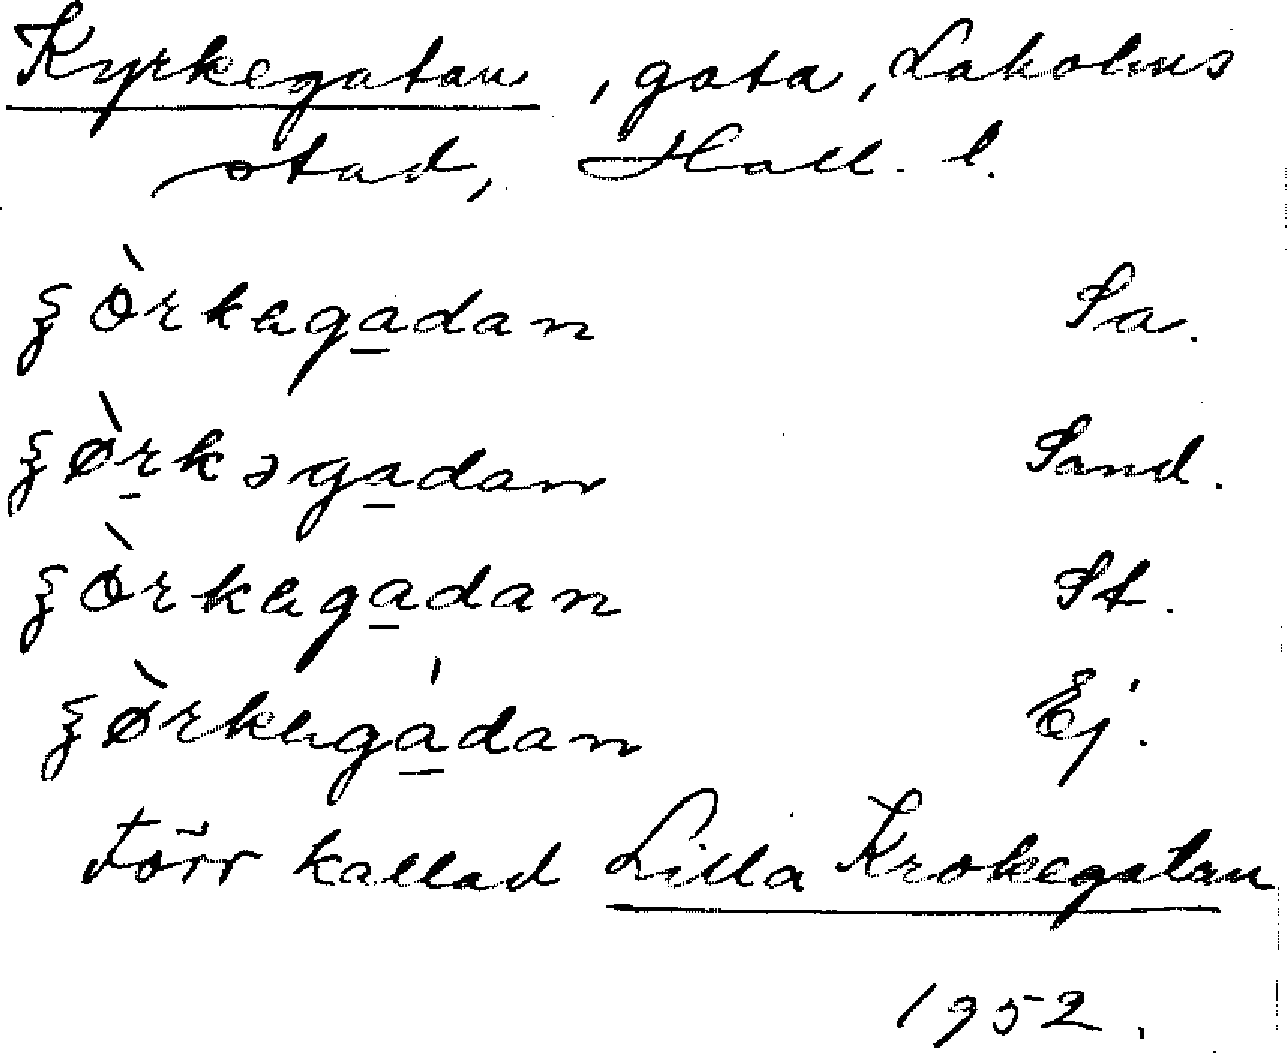 Kyrkegatan, gata, Laholms
stad, Hall. l.
ξòrkegadan Sa.
ξørkəgadan Sand.
ξòrkegadan St.
ξø̀rkegádan Ej.
Förr kallad Lilla Krokegatan
1952.